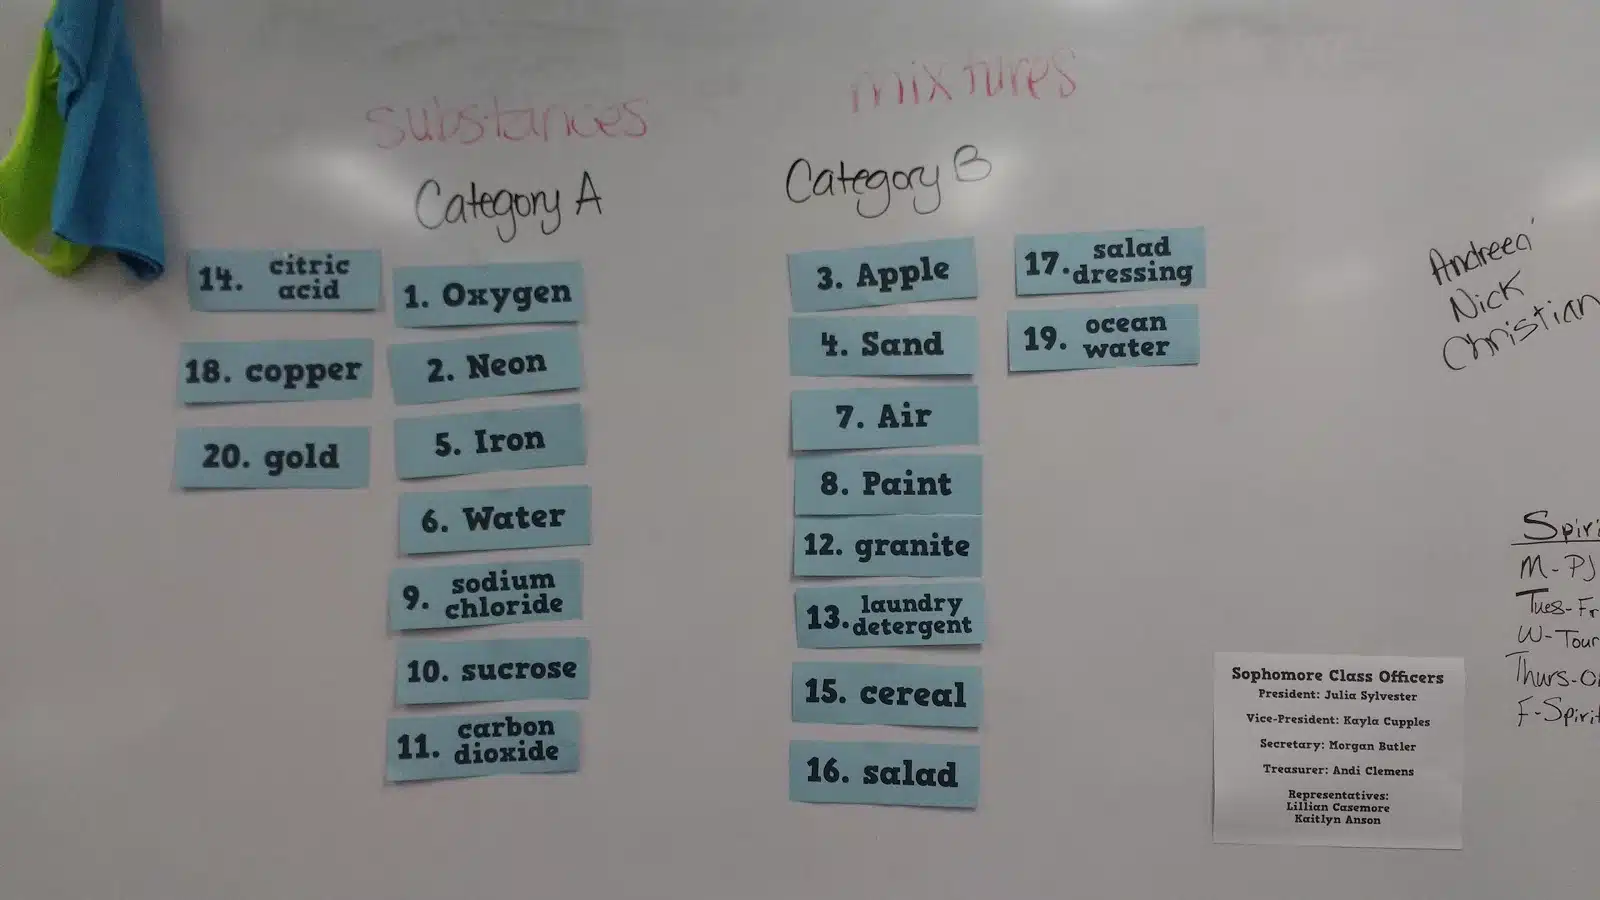 substances
mixtures
Category A
Category B
14. citric
acid
18. copper
20. gold
1. Oxygen
2. Neon
5. Iron
6. Water
9. sodium
chloride
10. sucrose
11. carbon
dioxide
3. Apple
4. Sand
7. Air
8. Paint
12. granite
13. laundry
detergent
15. cereal
16. salad
17. salad
dressing
19. ocean
water
Nick
Christian
M-PJ
Tues-Fr
W-Tour
Thurs-
F-Spirit
Sophomore Class Officers
President: Julia Sylvester
Vice-President: Kayla Cupples
Secretary: Morgan Butler
Treasurer: Andi Clemens
Representatives:
Lillian Casemore
Kaitlyn Anson